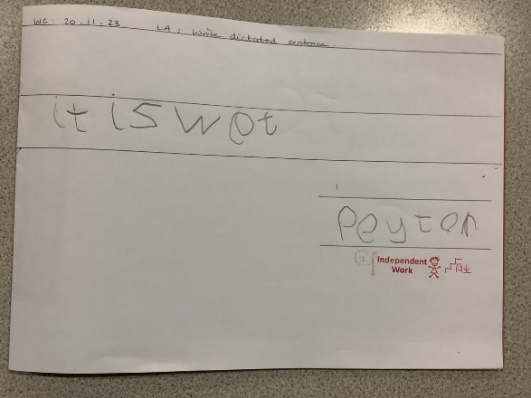 WC: 20.11.23 LA: Write dictated sentence.
it is wet
Peyton
Independent
Work